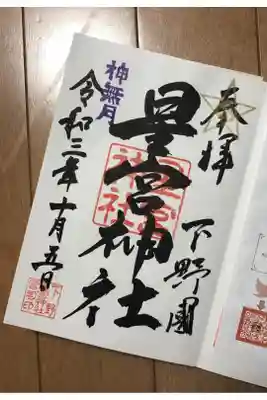 奉拝
下野國
星宮神社
星宮
神社
神無月
令和三年十月五日